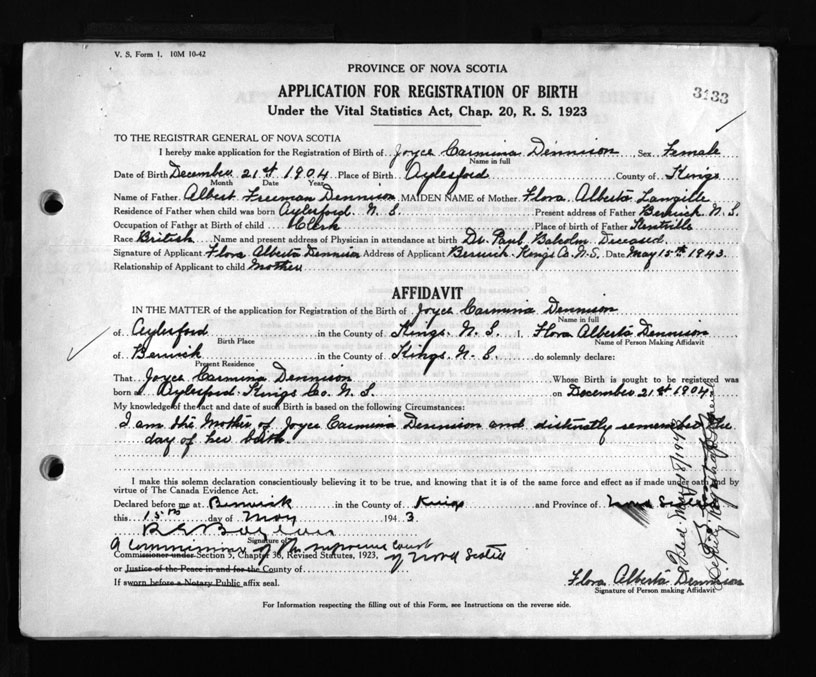 V. S. Form 1. 10M 10-42
PROVINCE OF NOVA SCOTIA
APPLICATION FOR REGISTRATION OF BIRTH
3133
Under the Vital Statistics Act, Chap. 20, R. S. 1923
TO THE REGISTRAR GENERAL OF NOVA SCOTIA
I hereby make application for the Registration of Birth of Joyce Carmina Dennison Sex Female
Name in full
Date of Birth December 21st 1904 Place of Birth Aylesford County of Kings
Month Date Year
Name of Father Albert Freeman Dennison MAIDEN NAME of Mother Flora Alberta Langille
Residence of Father when child was born Aylesford. N. S. Present address of Father Berwick N. S.
Occupation of Father at Birth of child Clerk Place of birth of Father Kentville
Race British Name and present address of Physician in attendance at birth Dr. Paul Balcolm Diseased.
Signature of Applicant Flora Alberta Dennison Address of Applicant Berwick. Kings Co. N.S. Date May 15th 1943.
Relationship of Applicant to child Mother
AFFIDAVIT
IN THE MATTER of the application for Registration of the Birth of Joyce Carmina Dennison
Name in full
of Aylesford in the County of Kings. N. S. I, Flora Alberta Dennison
Birth Place Name of Person Making Affidavit
of Berwick in the County of Kings. N. S. do solemnly declare:
Present Residence
That Joyce Carmina Dennison Whose Birth is sought to be registered was
born at Aylesford Kings Co. N. S. on December 21st 1904
My knowledge of the fact and date of such Birth is based on the following Circumstances:
I am the Mother of Joyce Carmina Dennison and distinctly remember the
day of her birth.
I make this solemn declaration conscientiously believing it to be true, and knowing that it is of the same force and effect as if made under oath and by
virtue of The Canada Evidence Act.
Declared before me at Berwick in the County of Kings and Province of Nova Scotia
this 15th day of May 1943.
Signature of
A Commissioner of the Supreme Court
Commissioner under Section 5, Chapter 38, Revised Statutes, 1923, of Nova Scotia
or Justice of the Peace in and for the County of
If sworn before a Notary Public affix seal.
Flora Alberta Dennison
Signature of Person making Affidavit
For Information respecting the filling out of this Form, see Instructions on the reverse side.
Filed May 18/1943